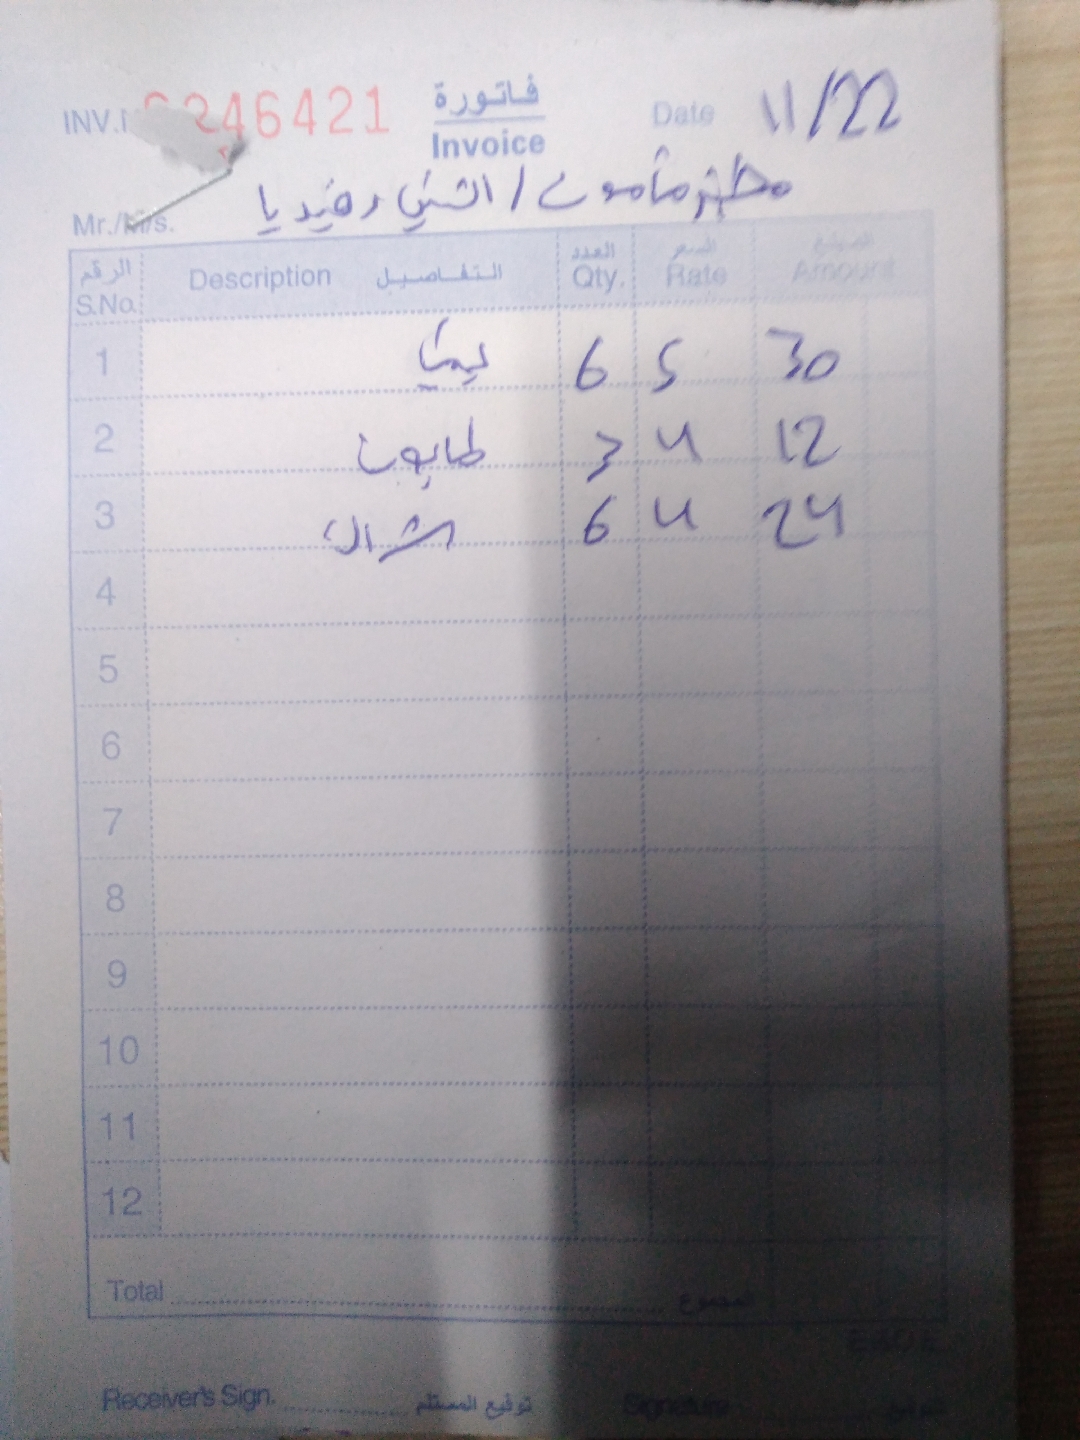 INV. 246421 فاتورة Date 11/22
Invoice
مطبخ مأمون / الشني رفيديا
Mr./M/s.
الرقم التفاصيل العدد السعر المبلغ
S.No. Description Qty. Rate Amount
1 6 5 30
2 طابون 3 4 12
3 شراك 6 4 24
4
5
6
7
8
9
10
11
12
Total المجموع
Receiver's Sign. توقيع المستلم Signature